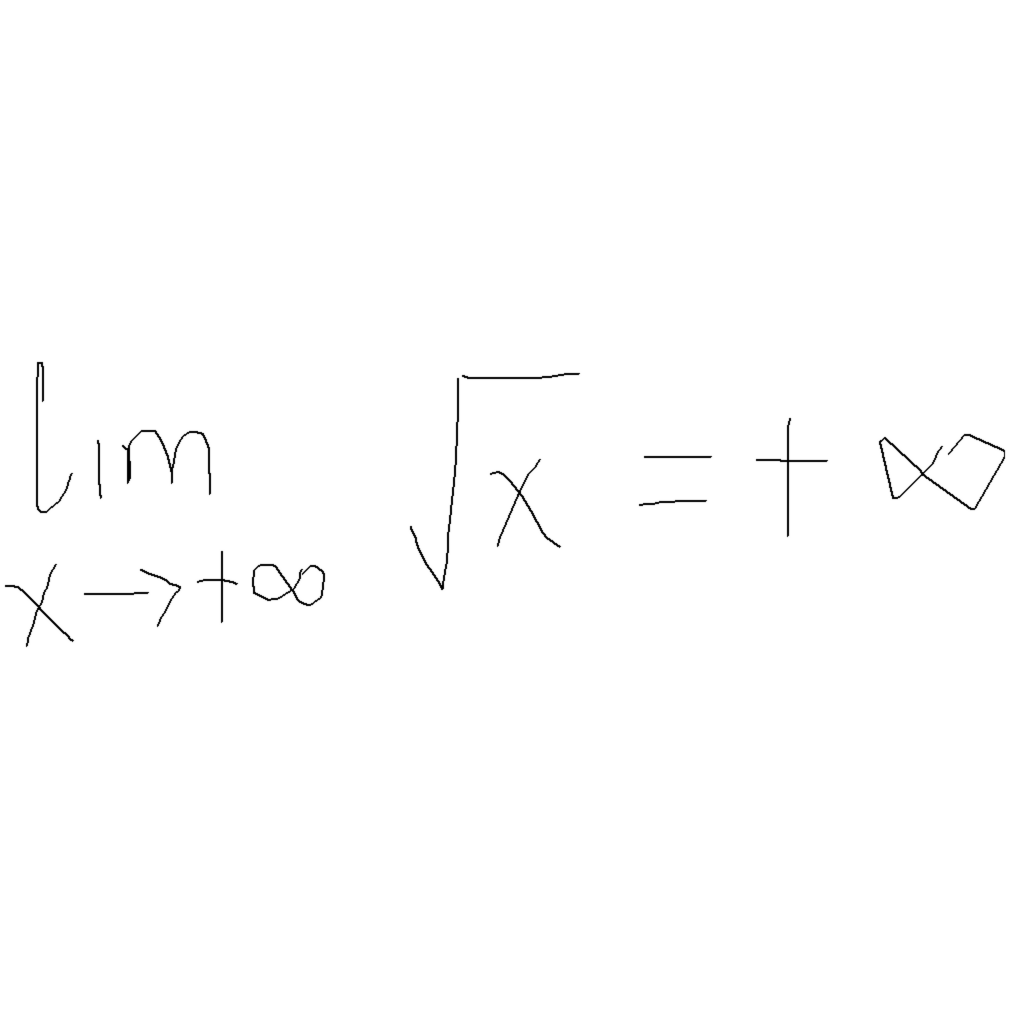 lim √x = +∞
x→+∞